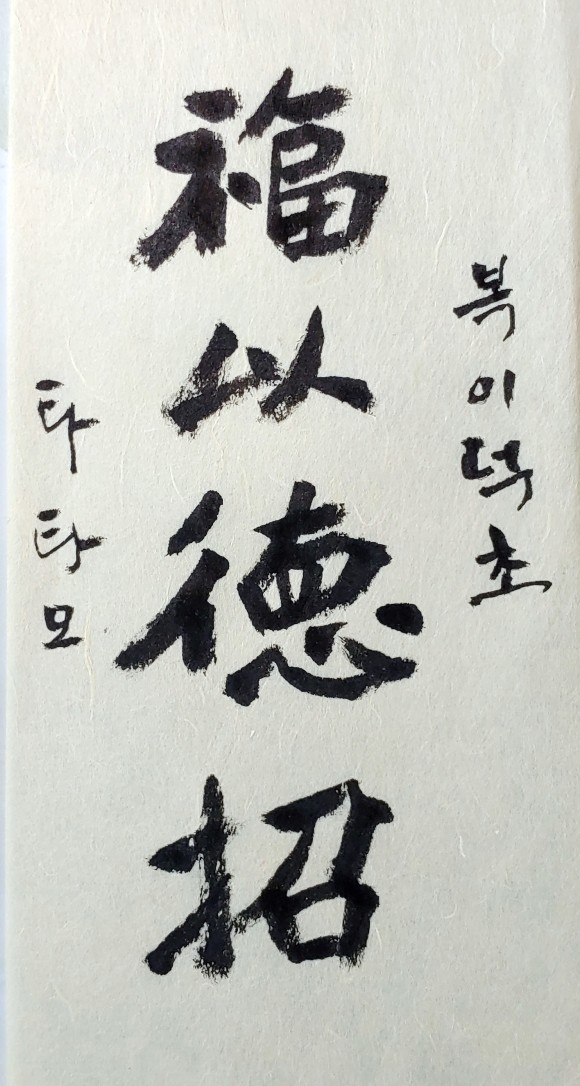 복이덕초
福以德招
타타모